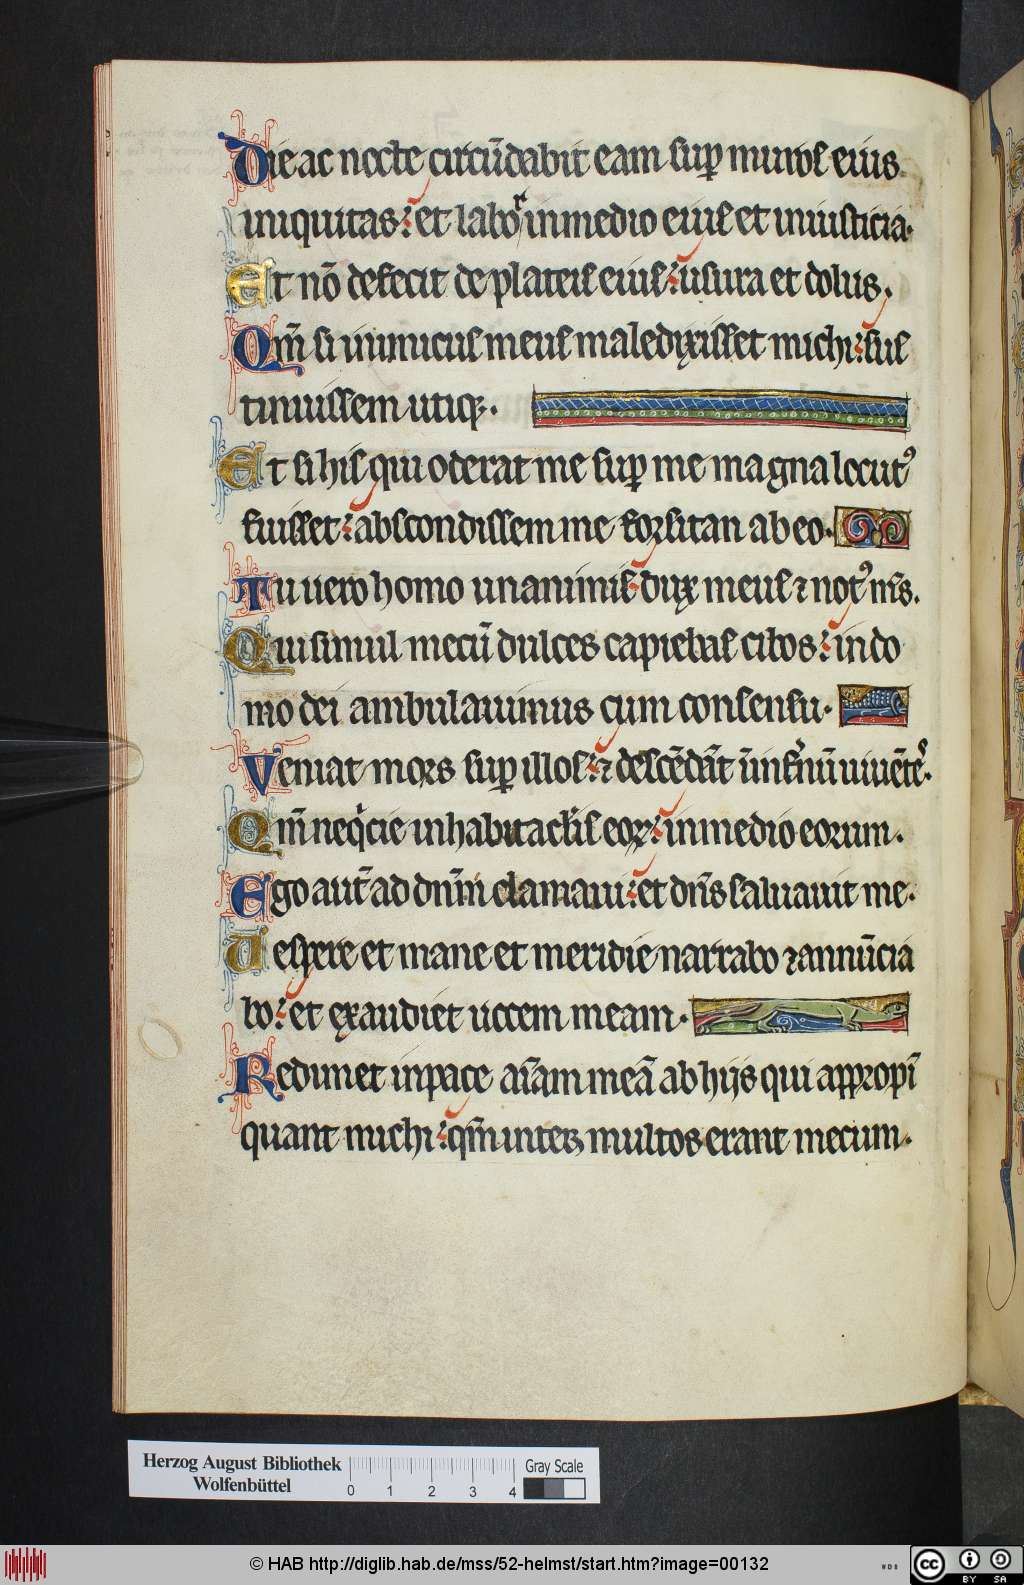 Die ac nocte circūdabit eam suꝑ muroſ eius
iniquitas: et labor inmedio eiuſ et iniusticia.
Et nō defecit de plateiſ eiuſ: usura et dolus.
Qm̄ si inimicuſ meuſ maledixiſſet michi: suſ
tinuiſſem utiqꝫ.
Et si hiſ qui oderat me suꝑ me magna locutꝰ
fuiſſet: abscondiſſem me forsitan ab eo.
Tu uero homo unanimiſ: dux meuſ ⁊ notꝰ mͨs.
Qui simul mecū dulces capiebaſ cibos: in do
mo dei ambulauimus cum conſenſu.
Veniat mors suꝑ illoſ: ⁊ deſcēdāt in infͥnū uiuētͤs.
Qm̄ neqͥcie inhabitacl̄iſ eoꝝ: inmedio eorum.
Ego aut̄ ad dn̄m clamaui: et dn̄s saluauit me.
Ueſpere et mane et meridie narrabo ⁊ annūcia
bo: et exaudiet uocem meam.
Redimet inpace aīam meā ab hijs qui appropī
quant michi: qm̄ inter multos erant mecum.
Herzog August Bibliothek
Wolfenbüttel
0 1 2 3 4
Gray Scale
© HAB http://diglib.hab.de/mss/52-helmst/start.htm?image=00132
WDB
CC BY SA